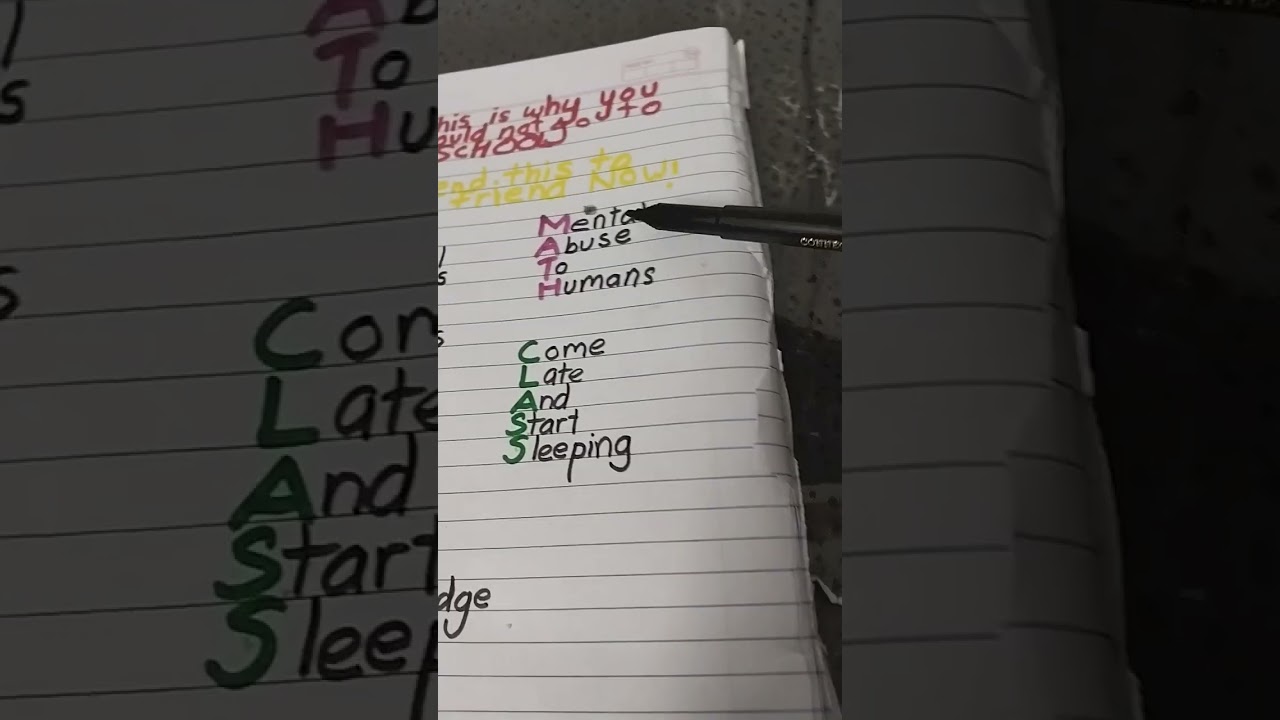 his is why you
ould not go to
SCHOOL
end this to
friend Now!
Mental
Abuse
To
Humans
Come
Late
And
Start
Sleeping
dge